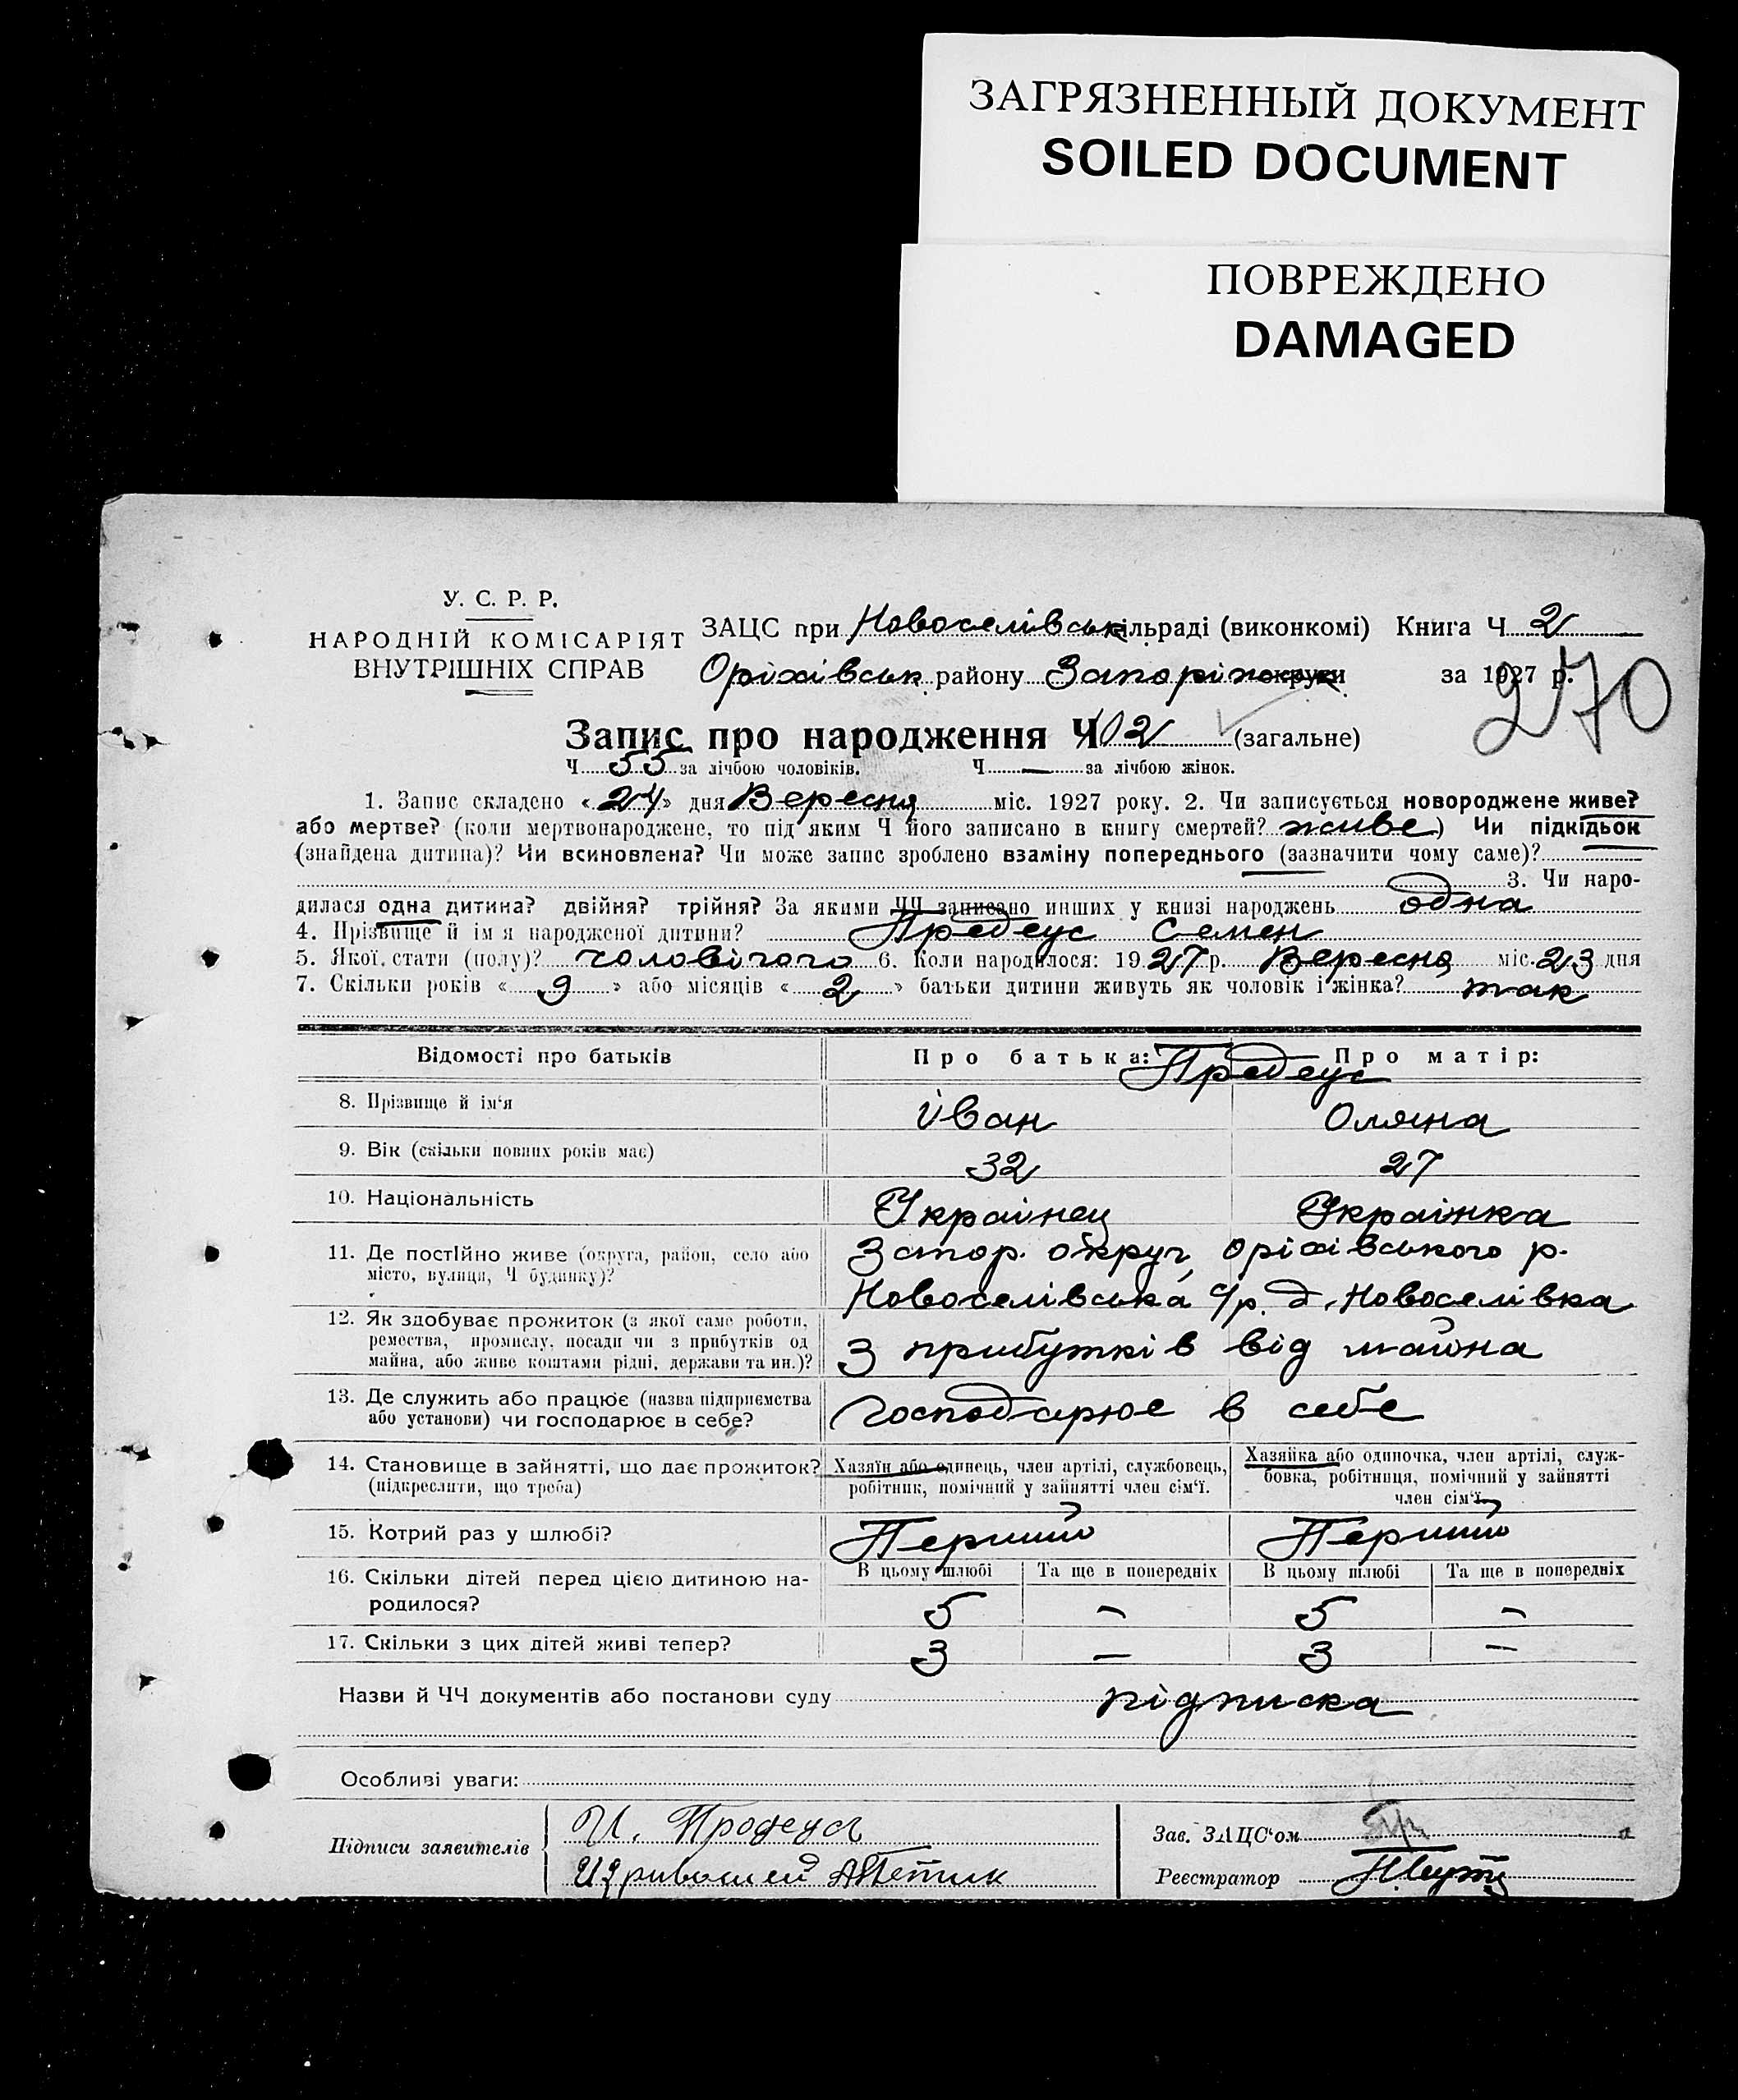 ЗАГРЯЗНЕННЫЙ ДОКУМЕНТ
SOILED DOCUMENT
ПОВРЕЖДЕНО
DAMAGED
У. С. Р. Р.
НАРОДНІЙ КОМІСАРІЯТ
ВНУТРІШНІХ СПРАВ
ЗАЦС при Новоселівськ ільраді (виконкомі) Книга Ч 2
Оріхівськ району Запоріж округи за 1927 р.
270
Запис про народження Ч 102 (загальне)
Ч 55 за лічбою чоловіків. Ч — за лічбою жінок.
1. Запис складено « 24 » дня Вересня міс. 1927 року. 2. Чи записується новороджене живе?
або мертве? (коли мертвонароджене, то під яким Ч його записано в книгу смертей? живе) Чи підкідьок
(знайдена дитина)? Чи всиновлена? Чи може запис зроблено взаміну попереднього (зазначити чому саме)?
3. Чи наро-
дилася одна дитина? двійня? трійня? За якими ЧЧ записано инших у книзі народжень одна
4. Прізвище й ім'я народженої дитини? Продеус Семен
5. Якої стати (полу)? чоловічого 6. Коли народилося: 1927 р. Вересня міс. 23 дня
7. Скільки років « 9 » або місяців « 2 » батьки дитини живуть як чоловік і жінка? так
Відомості про батьків Про батька: Продеус Про матір:
8. Прізвище й ім'я Іван Оляна
9. Вік (скільки повних років має) 32 27
10. Національність Українец Українка
11. Де постійно живе (округа, район, село або Запор. округ, Оріхівського р.
місто, вулиця, Ч будинку)? Новоселівська с/р. д. Новоселівка
12. Як здобуває прожиток (з якої саме роботи,
ремества, промислу, посади чи з прибутків од
майна, або живе коштами рідні, держави та ин.)? З прибутків від майна
13. Де служить або працює (назва підприємства
або установи) чи господарює в себе? Господарює в себе
14. Становище в зайнятті, що дає прожиток? Хазяїн або одинець, член артілі, службовець, Хазяйка або одиночка, член артілі, служ-
(підкреслити, що треба) робітник, помічний у зайнятті член сім'ї. бовка, робітниця, помічний у зайнятті
член сім'ї
15. Котрий раз у шлюбі? Перший Перший
16. Скільки дітей перед цією дитиною на- В цьому шлюбі Та ще в попередніх В цьому шлюбі Та ще в попередніх
родилося? 5 – 5 –
17. Скільки з цих дітей живі тепер? 3 – 3 –
Назви й ЧЧ документів або постанови суду підписка
Особливі уваги:
Підписи заявителів И. Продеус
Зав. ЗАЦС'ом
Реєстратор